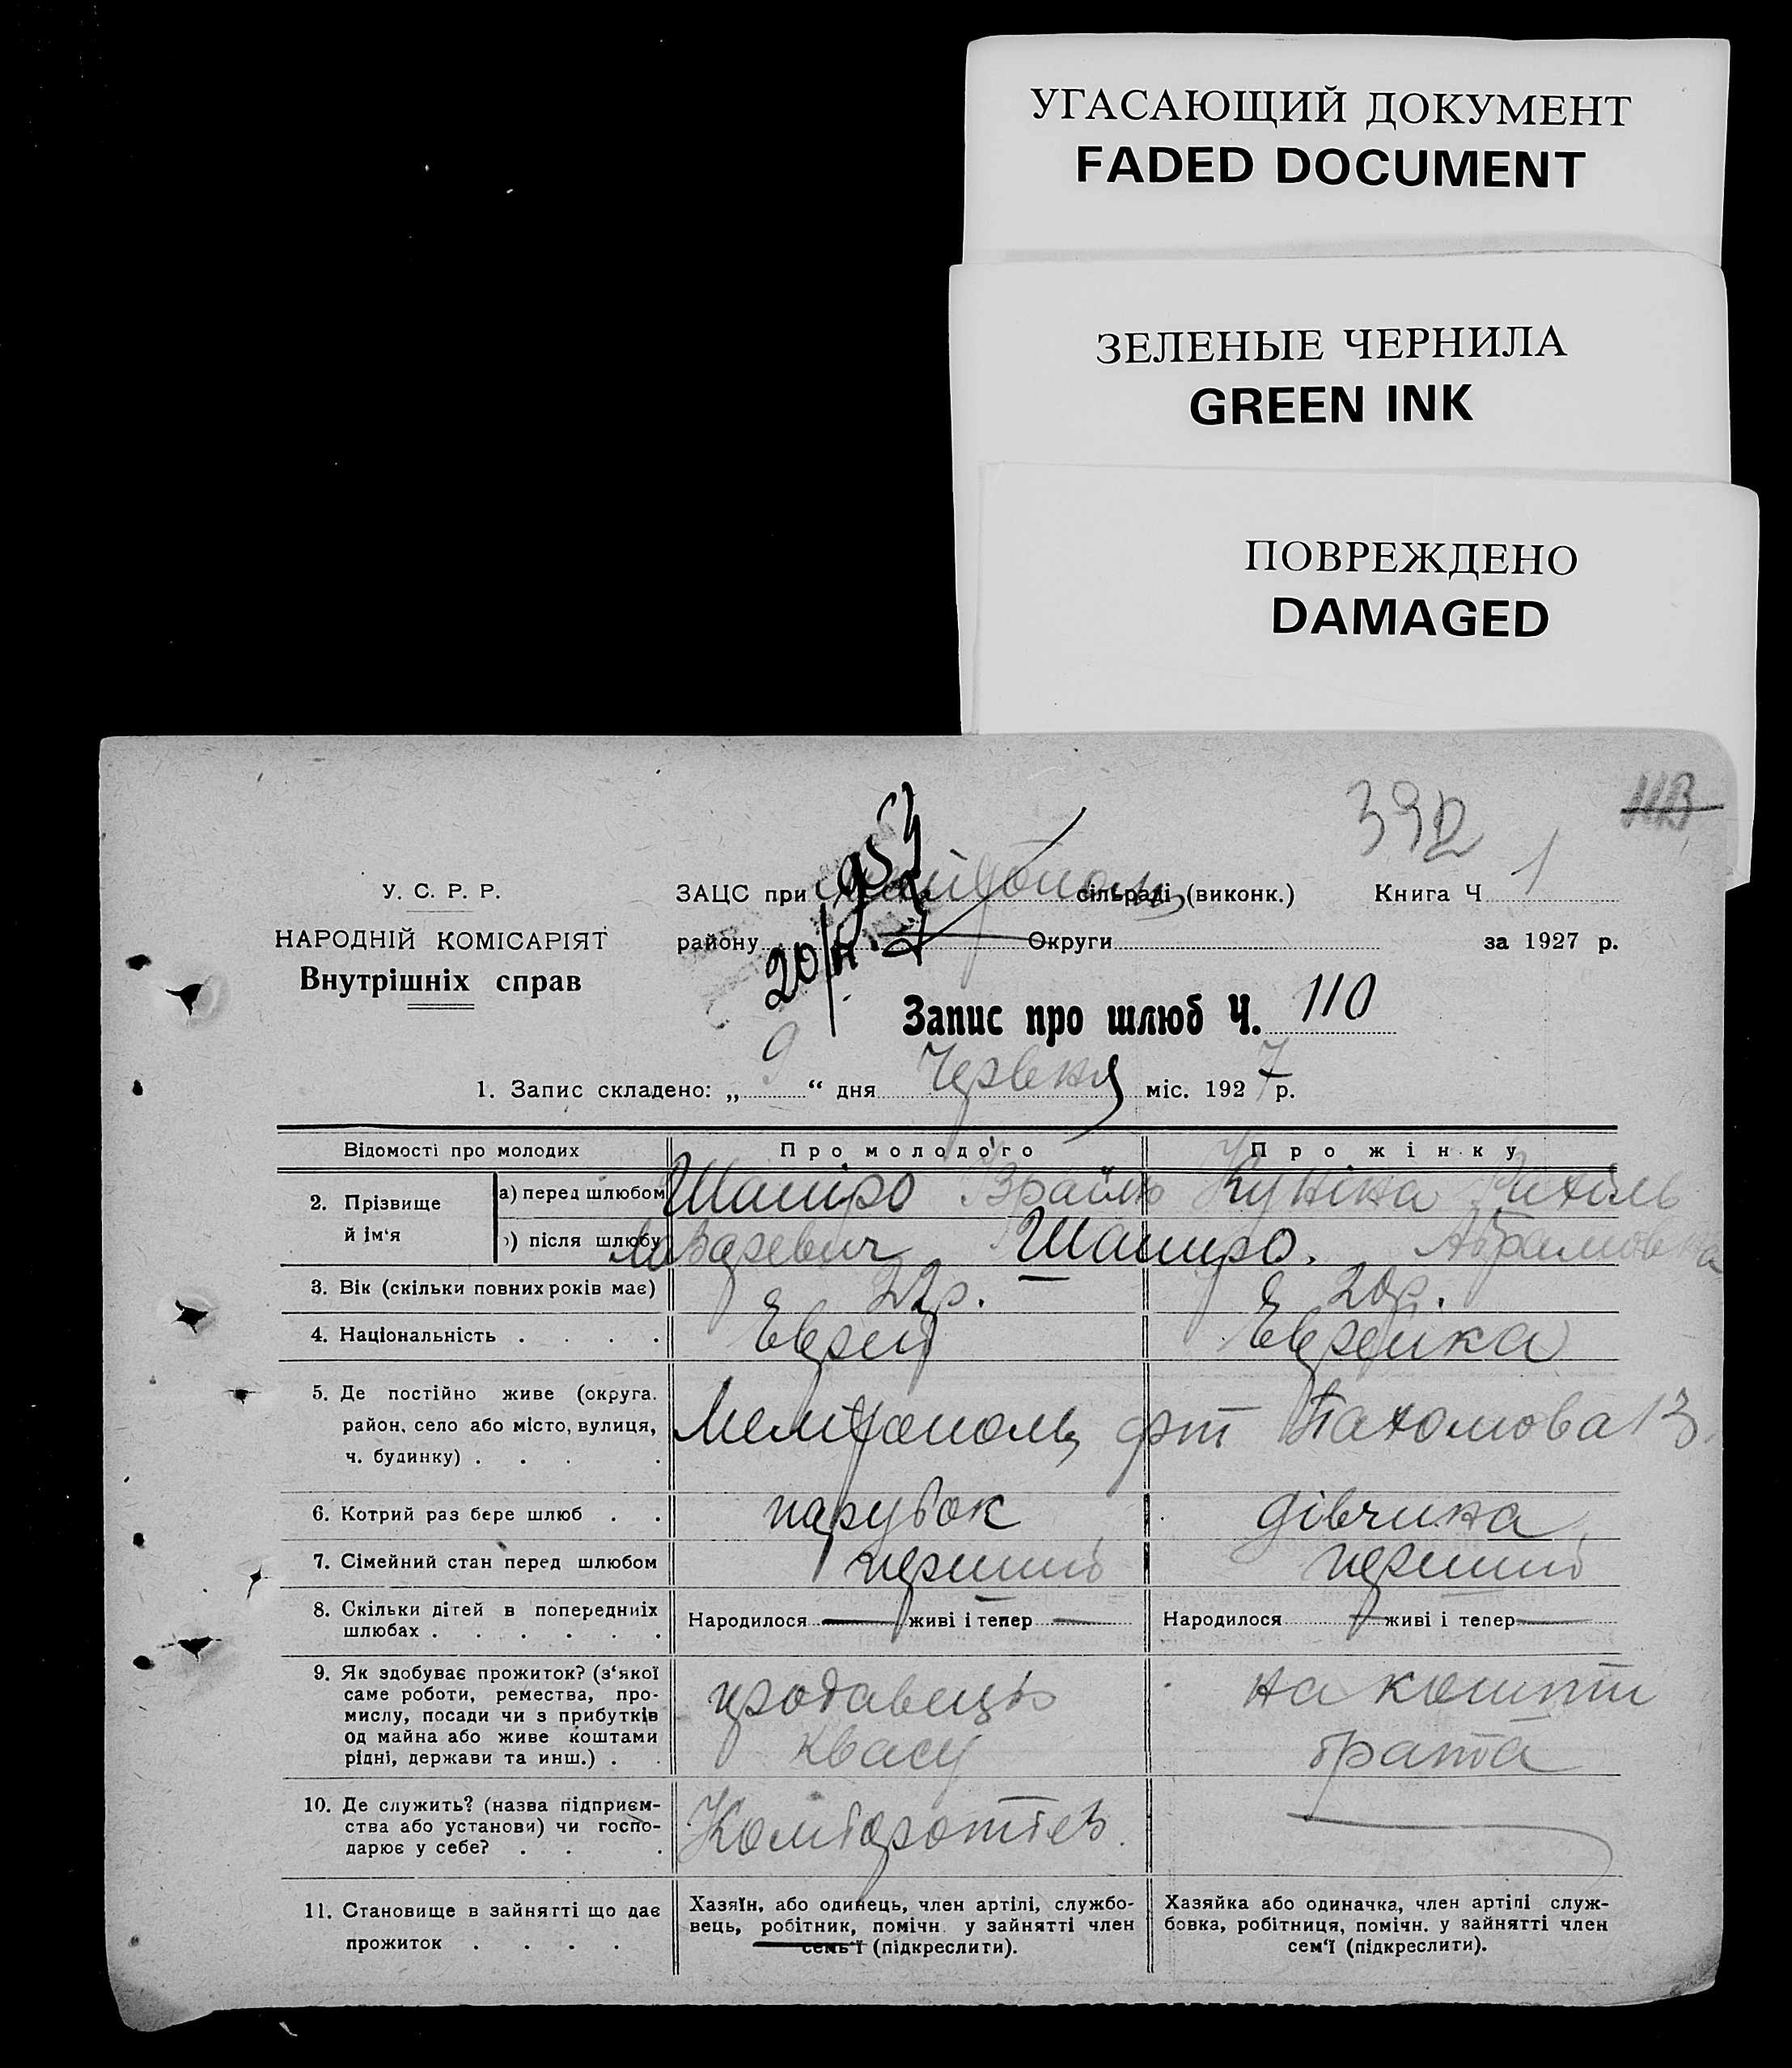 УГАСАЮЩИЙ ДОКУМЕНТ
FADED DOCUMENT
ЗЕЛЕНЫЕ ЧЕРНИЛА
GREEN INK
ПОВРЕЖДЕНО
DAMAGED
392 113
953
У. С. Р. Р.
ЗАЦС при сільраді (виконк.) Книга Ч 1
НАРОДНІЙ КОМІСАРІЯТ
району Округи за 1927 р.
Внутрішніх справ
Запис про шлюб Ч. 110
1. Запис складено: „ 9 “ дня Червня міс. 1927 р.
Відомості про молодих Про молодого Про жінку
2. Прізвище й ім‘я
а) перед шлюбом Шапіро Ізраїль Куніна Рахіль
б) після шлюбу Лазаревич Шапиро. Абрамовна
3. Вік (скільки повних років має) 22 р. 20 р.
4. Національність . . . . Еврей Еврейка
5. Де постійно живе (округа.
район, село або місто, вулиця,
ч. будинку) . . . .
Мелитополь Пахомова 13.
6. Котрий раз бере шлюб . . парубок дівчина
7. Сімейний стан перед шлюбом перший перший
8. Скільки дітей в попередниіх
шлюбах . . . . . .
Народилося — живі і тепер — Народилося — живі і тепер —
9. Як здобуває прожиток? (з‘якої
саме роботи, ремества, про-
мислу, посади чи з прибутків
од майна або живе коштами
рідні, держави та инш.) . .
продавець
квасу
на кошти
брата
10. Де служить? (назва підприєм-
ства або установи) чи госпо-
дарює у себе? . . .
Комборотьез.
11. Становище в зайнятті що дає
прожиток . . . .
Хазяїн, або одинець, член артілі, службо-
вець, робітник, помічн. у зайнятті член
семь‘ї (підкреслити).
Хазяйка або одиначка, член артілі служ-
бовка, робітниця, помічн. у зайнятті член
сем‘ї (підкреслити).